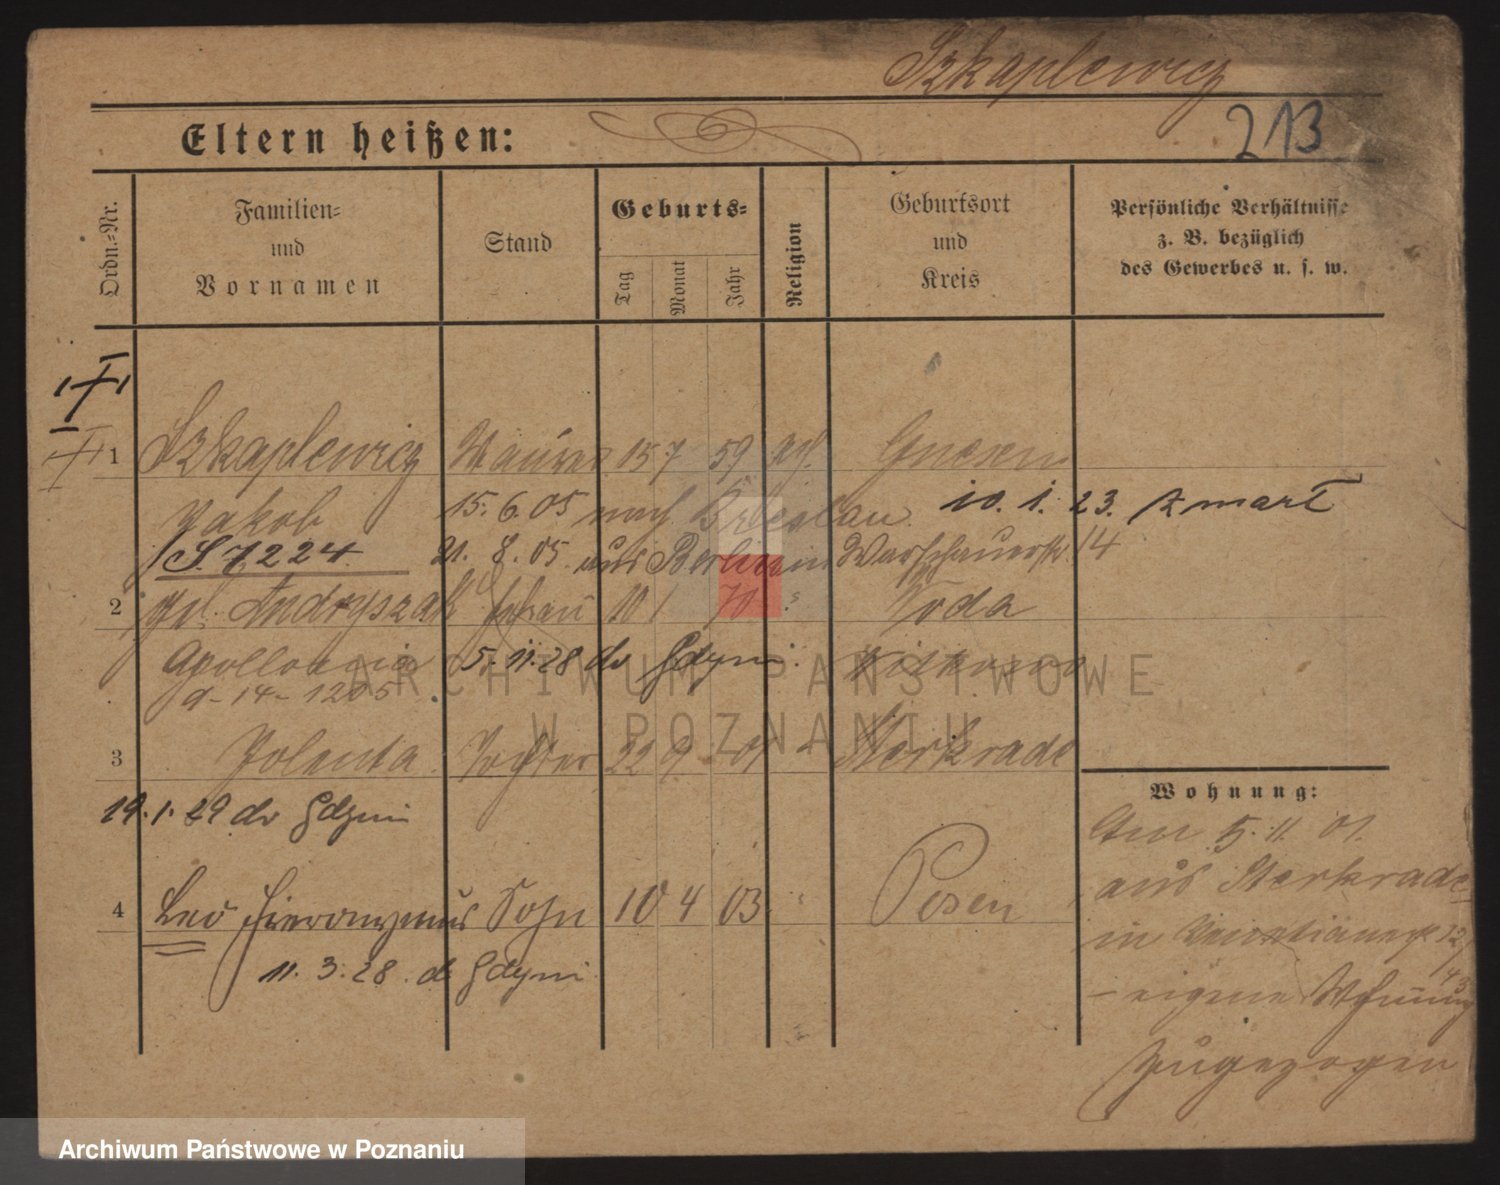 Szkaplewicz
213
Eltern heißen:
Ordn.-Nr.
Familien-
und
Vornamen
Stand
Geburts-
Tag
Monat
Jahr
Religion
Geburtsort
und
Kreis
Persönliche Verhältnisse
z. B. bezüglich
des Gewerbes u. s. w.
1 Szkaplewicz Maurer 15 7 59 kath. Gnesen
Jakob 15. 6. 05 nach Breslau 10. 1. 23. zmarł
S. 7224 21. 8. 05 aus Berlin in Warschauerstr. 14
2 Andryszak Frau 10 1 70 "
Apollonia 5. 11. 28 do Gdyni. Witkowo
a-14-1205
3 Jolenta Tochter 22 9 01 " Sterkrade
19. 1. 29 do Gdyni
4 Leo Hieronymus Sohn 10 4 03 " Posen
11. 3. 28. do Gdyni
Wohnung:
Am 5. 11. 01.
aus Sterkrade
in
– eigene Wohnung
zugezogen
ARCHIWUM PAŃSTWOWE
W POZNANIU
Archiwum Państwowe w Poznaniu